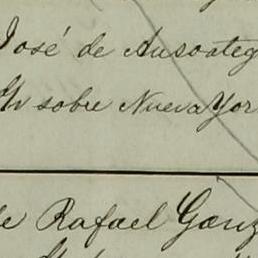 José de Ansoateg
Gr sobre Nueva Yor
de Rafael Gonz